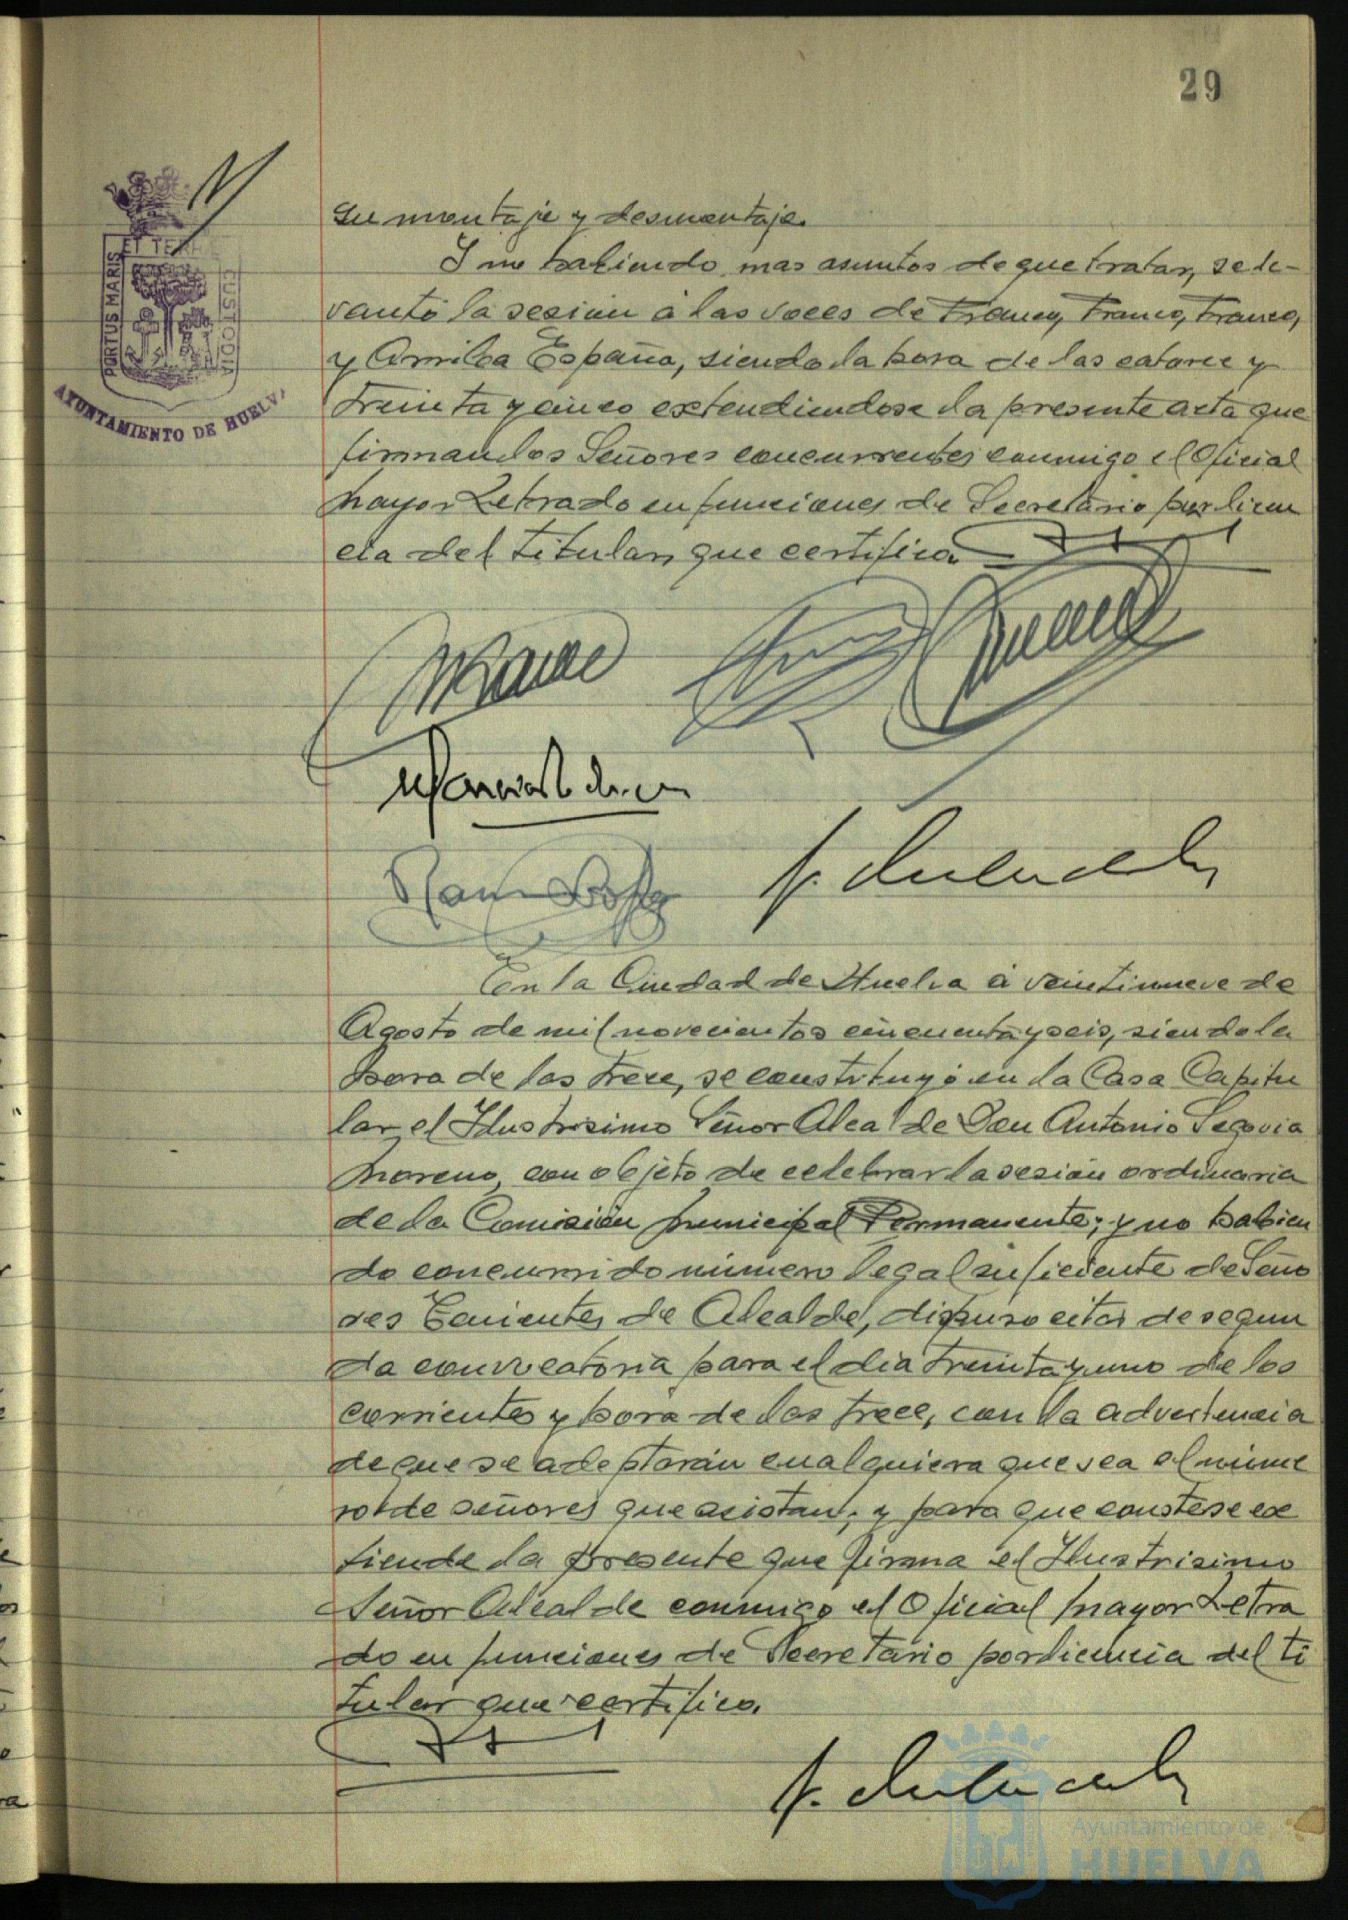 29
PORTUS MARIS ET TERRÆ CUSTODIA
AYUNTAMIENTO DE HUELVA
su montaje y desmontaje.
Y no habiendo mas asuntos de que tratar, se le-
vantó la sesión á las voces de Franco, Franco, Franco,
y Arriba España, siendo la hora de las catorce y
treinta y cinco extendiendose la presente acta que
firman los Señores concurrentes conmigo el Oficial
Mayor Letrado en funciones de Secretario por licen
cia del titular, que certifico.
En la Ciudad de Huelva á veintinueve de
Agosto de mil novecientos cincuenta y seis, siendo la
hora de las trece, se constituyó en la Casa Capitu
lar el Ilustrisimo Señor Alcalde Don Antonio Segovia
Moreno, con objeto de celebrar la sesión ordinaria
de la Comisión Municipal Permanente; y no habien
do concurrido número legal suficiente de Seño
res Tenientes de Alcalde, dispuso citar de segun
da convocatoria para el dia treinta y uno de los
corrientes y hora de las trece, con la advertencia
de que se adoptarán cualquiera que sea el núme
ro de señores que asistan; y para que conste se ex
tiende la presente que firma el Ilustrisimo
Señor Alcalde conmigo el Oficial Mayor Letra
do en funciones de Secretario por licencia del ti
tular que certifico.
Ayuntamiento de
HUELVA